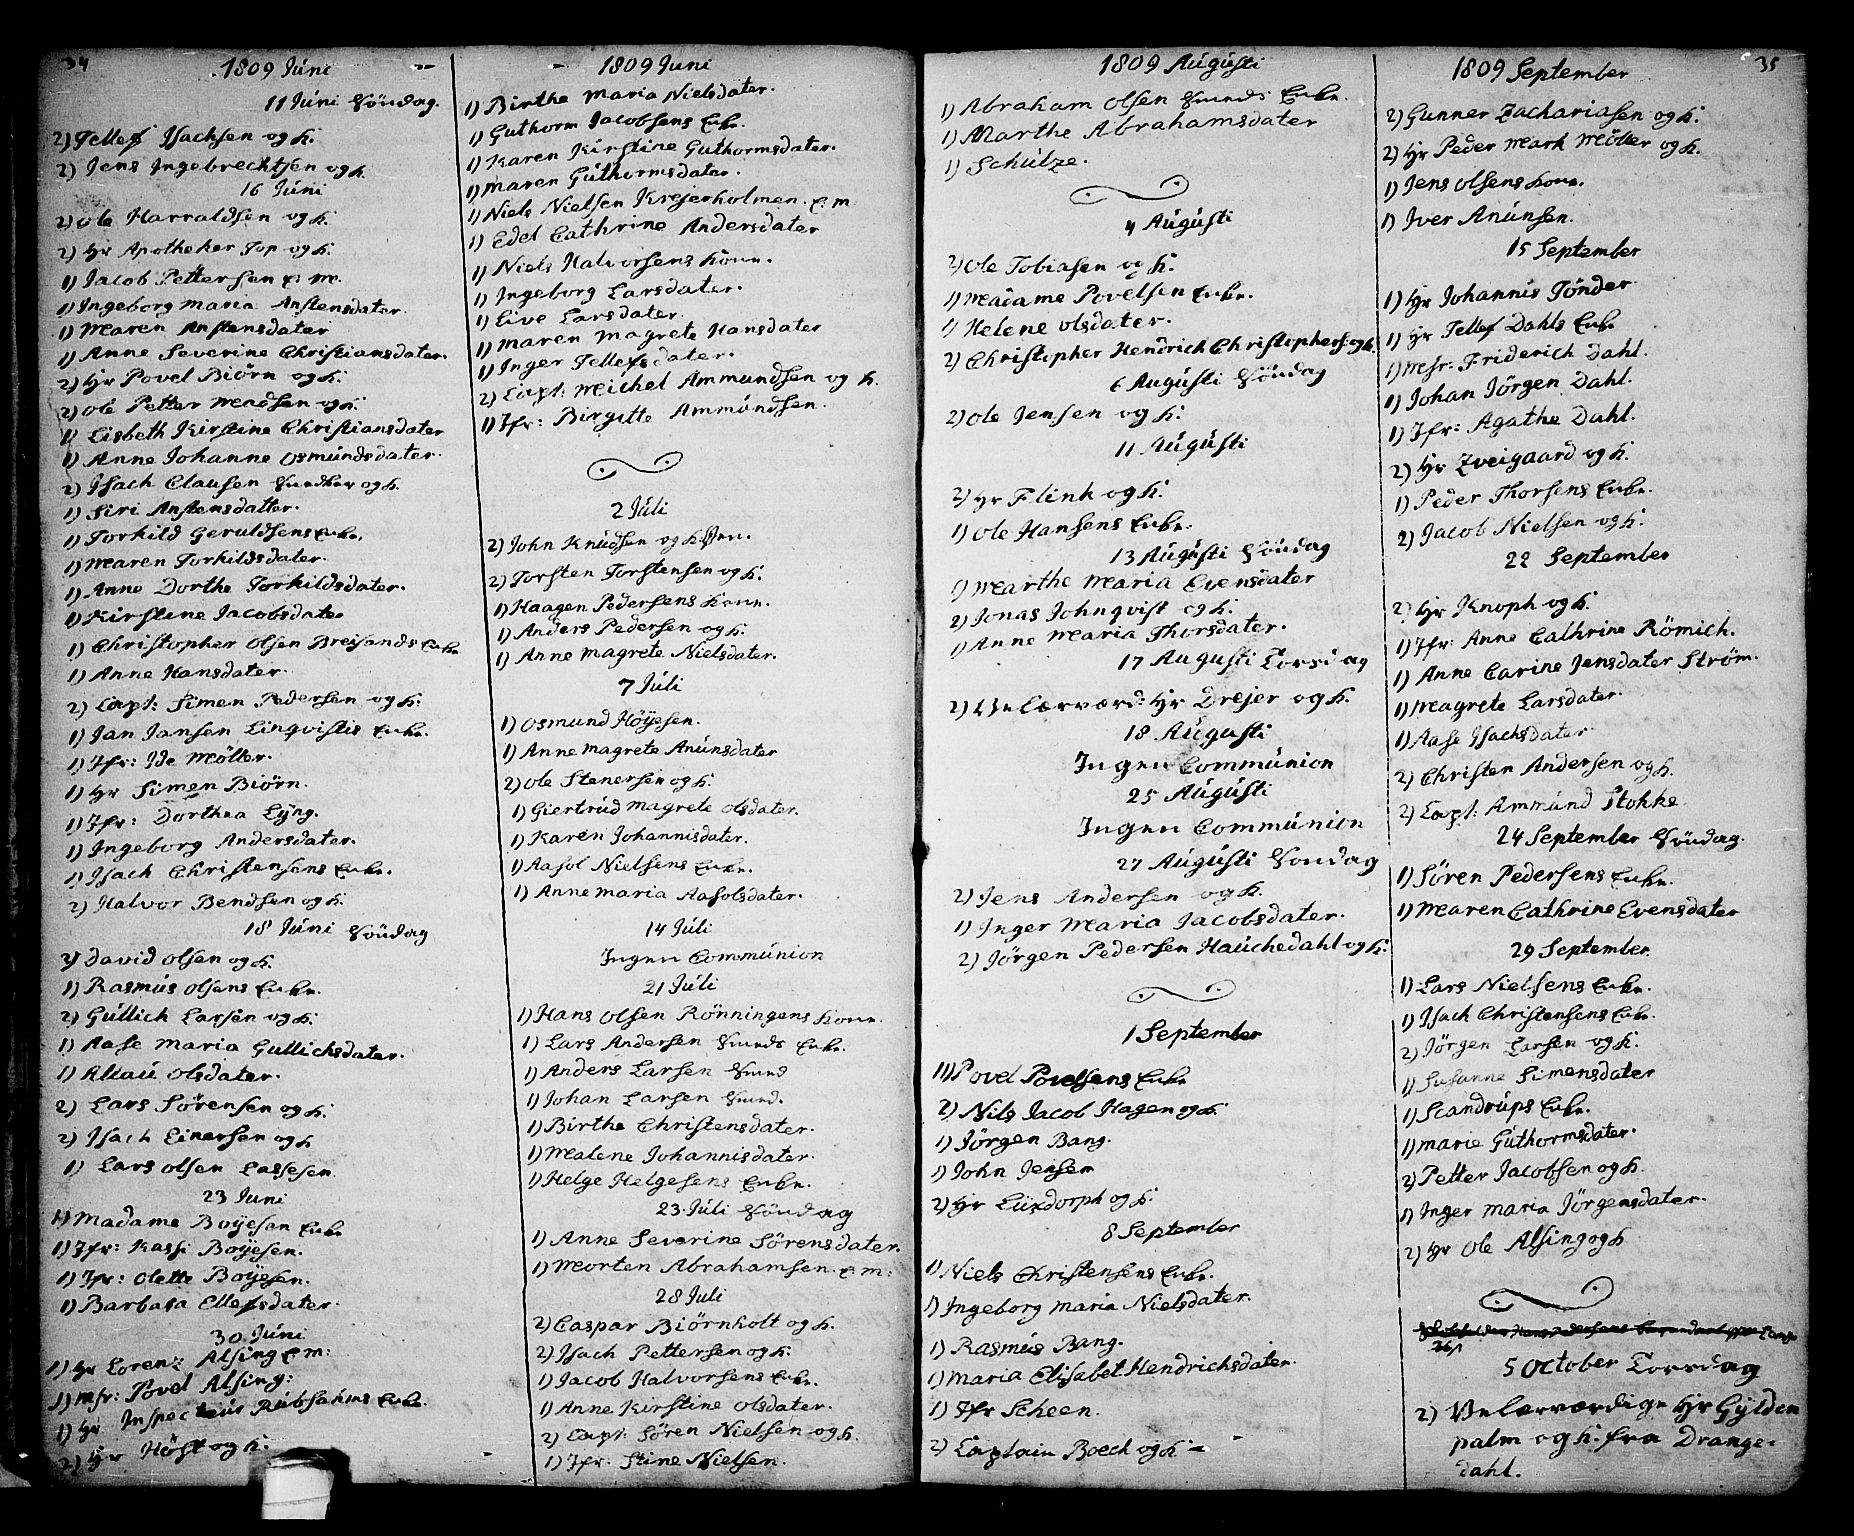 34
1809 Júni
11 Júni Söndag.
2) Tellef Isachsen og K.
2) Jens Ingebrechtsen og K.
16 Júni
2) Ole Harraldsen og K.
2) Hr Apotheker Top og K.
1) Jacob Pettersen E. M.
1) Ingeborg Maria Anstensdater.
1) Maren Anstensdater
1) Anne Severine Christiansdater.
2) Hr Povel Biörn og K.
2) Ole Petter Madsen og K.
1) Lisbeth Kirstine Christiansdater
1) Anne Johanne Osmúndsdater.
2) Isach Clausen og K.
1) Siri Anstensdatter.
1) Torkild Geruldsens Enke.
1) Maren Torkildsdater.
1) Anne Dorthe Torkildsdater.
1) Kirstine Jacobsdater
1) Christopher Olsen Breisands Enke
1) Anne Hansdater.
2) Capt: Simen Pedersen og K:
1) Jan Jansen Linqvistis Enke.
1) Jfr: Ide Möller.
1) Hr Simen Biörn.
1) Jfr: Dorthea Lyng.
1) Ingeborg Andersdater.
1) Isach Christensens Enke.
2) Halvor Bendsen og K.
18 Júni Söndag
2) David Olsen og K.
1) Rasmús Olsens Enke.
2) Gúllich Larsen og K.
1) Aase Maria Gullichsdater.
1) Altaú Olsdater.
2) Lars Sörensen og K.
2) Isach Einersen og K
1) Lars Olsen Lassesen.
23 Juni
1) Madame Boÿesen Enke
1) Jfr: Kassi Boÿesen.
1) Jfr: Olette Boÿesen.
1) Barbara Ellefsdater.
30 Júni
1) Hr Lorenz Alsing E M:
1) Msr: Povel Alsing:
1) Hr Inspecteúr Rúbsahms Enke.
2) Hr Höst og K.
1809 Juni
1) Birthe Maria Nielsdater.
1) Guthorm Jacobsens Enke.
1) Karen Kirstine Guthormsdater.
1) Maren Gúthormsdater.
1) Niels Nielsen Krejerholmen. E M
1) Edel Cathrine Andersdater
1) Niels Halvorsens Kone.
1) Ingeborg Larsdater.
1) Live Larsdater.
1) Maren Magrete Hansdater
1) Inger Tellefsdater.
2) Capt: Michel Ammundsen og K.
1) Jfr: Birgitte Ammúndsen.
2 Júli
2) John Knúdsen og K.
2) Torsten Torstensen og K.
1) Haagen Pedersens Kone.
1) Anders Pedersen og K.
1) Anne Magrete Nielsdater.
7 Júli
1) Osmund Höÿesen.
1) Anne Magrete Anúnsdater
2) Ole Stenersen og K.
1) Giertrúd Magrete Olsdater.
1) Karen Johannisdater.
1) Aasol Nielsens Enke.
1) Anne Maria Aasolsdater.
14 Júli
Ingen Commúnion
21 Júli
1) Hans Olsen Rönningens Kone.
1) Lars Andersen Sunds Enke.
1) Anders Larsen Sund
1) Johan Larsen Sund.
1) Birthe Christensdater.
1) Malene Johannisdater.
1) Helge Helgesens Enke.
23 Júli Söndag
1) Anne Severine Sörensdater.
1) Morten Abrahamsen. E M:
28 Júli
2) Caspar Biörnholt og K.
2) Isach Pettersen og K:
1) Jacob Halvorsens Enke.
1) Anne Kirstine Olsdater.
2) Capt: Sören Nielsen og K.
1) Jfr: Stine Nielsen.
1809 Augústi
1) Abraham Olsen Sunds Enke.
1) Marthe Abrahamsdater
1) Schútze.
4 Augústi
2) Ole Tobiasen og K.
1) Madame Povelsen Enke.
1) Helene Olsdater.
2) Christopher Hendrich Christophers: og K.
6 Augústi Söndag
2) Ole Jensen og K:
11 Aúgústi
2) Hr Flink og K.
1) Ole Hansens Enke.
13 Augústi Söndag
1) Marthe Maria Evensdater
2) Jonas Johnqvist og K.
1) Anne Maria Thorsdater.
17 Augusti Torsdag
2) Velærværd: Hr Drejer og K.
18 Augústi
Ingen Commúnion
25 Augústi
Ingen Commúnion
27 Augústi Söndag
2) Jens Andersen og K.
1) Inger Maria Jacobsdater.
2) Jörgen Pedersen Haúchedahl og K:
1 September
1) Povel Povelsens Enke
2) Nils Jacob Hagen og K.
1) Jörgen Bang.
1) John Jensen
2) Hr Lúxdorph og K:
8 September
1) Niels Christensens Enke.
1) Ingeborg Maria Nielsdater.
1) Rasmús Bang.
1) Maria Elisabet Hendrichsdater.
1) Jfr Scheen.
2) Captain Boeck og K:
1809 September
35
2) Gunner Zachariasen og K.
2) Hr Peder Mark Möller og K.
1) Jens Olsens Kone.
1) Iver Anúnsen.
15 September
1) Hr Johannis Tönder.
1) Hr Tellef Dahls Enke
1) Msr: Friderich Dahl.
1) Johan Jörgen Dahl.
1) Jfr: Agathe Dahl.
2) Hr Zveigaard og K.
1) Peder Thorsens Enke.
2) Jacob Nielsen og K.
22 September
2) Hr Knoph og K.
1) Jfr: Anne Cathrine Römich.
1) Anne Carine Jensdater Ström.
1) Magrete Larsdater.
1) Aase Isachsdater
2) Christen Andersen og K.
2) Capt: Ammúnd Stokke
24 September Söndag.
1) Sören Pedersens Enke.
1) Maren Cathrine Evensdater
29 September
1) Lars Nielsens Enke.
1) Isach Christensens Enke.
2) Jörgen Larsen og K.
1) Susanne Simensdater
1) Scandrúps Enke.
1) Marie Gúthormsdater.
2) Petter Jacobsen og K.
1) Inger Maria Jörgensdater.
2) Hr Ole Alsing og K
5 October Torsdag
2) Velærværdige Hr Gylden
palm og K: fra Drange=
dahl.